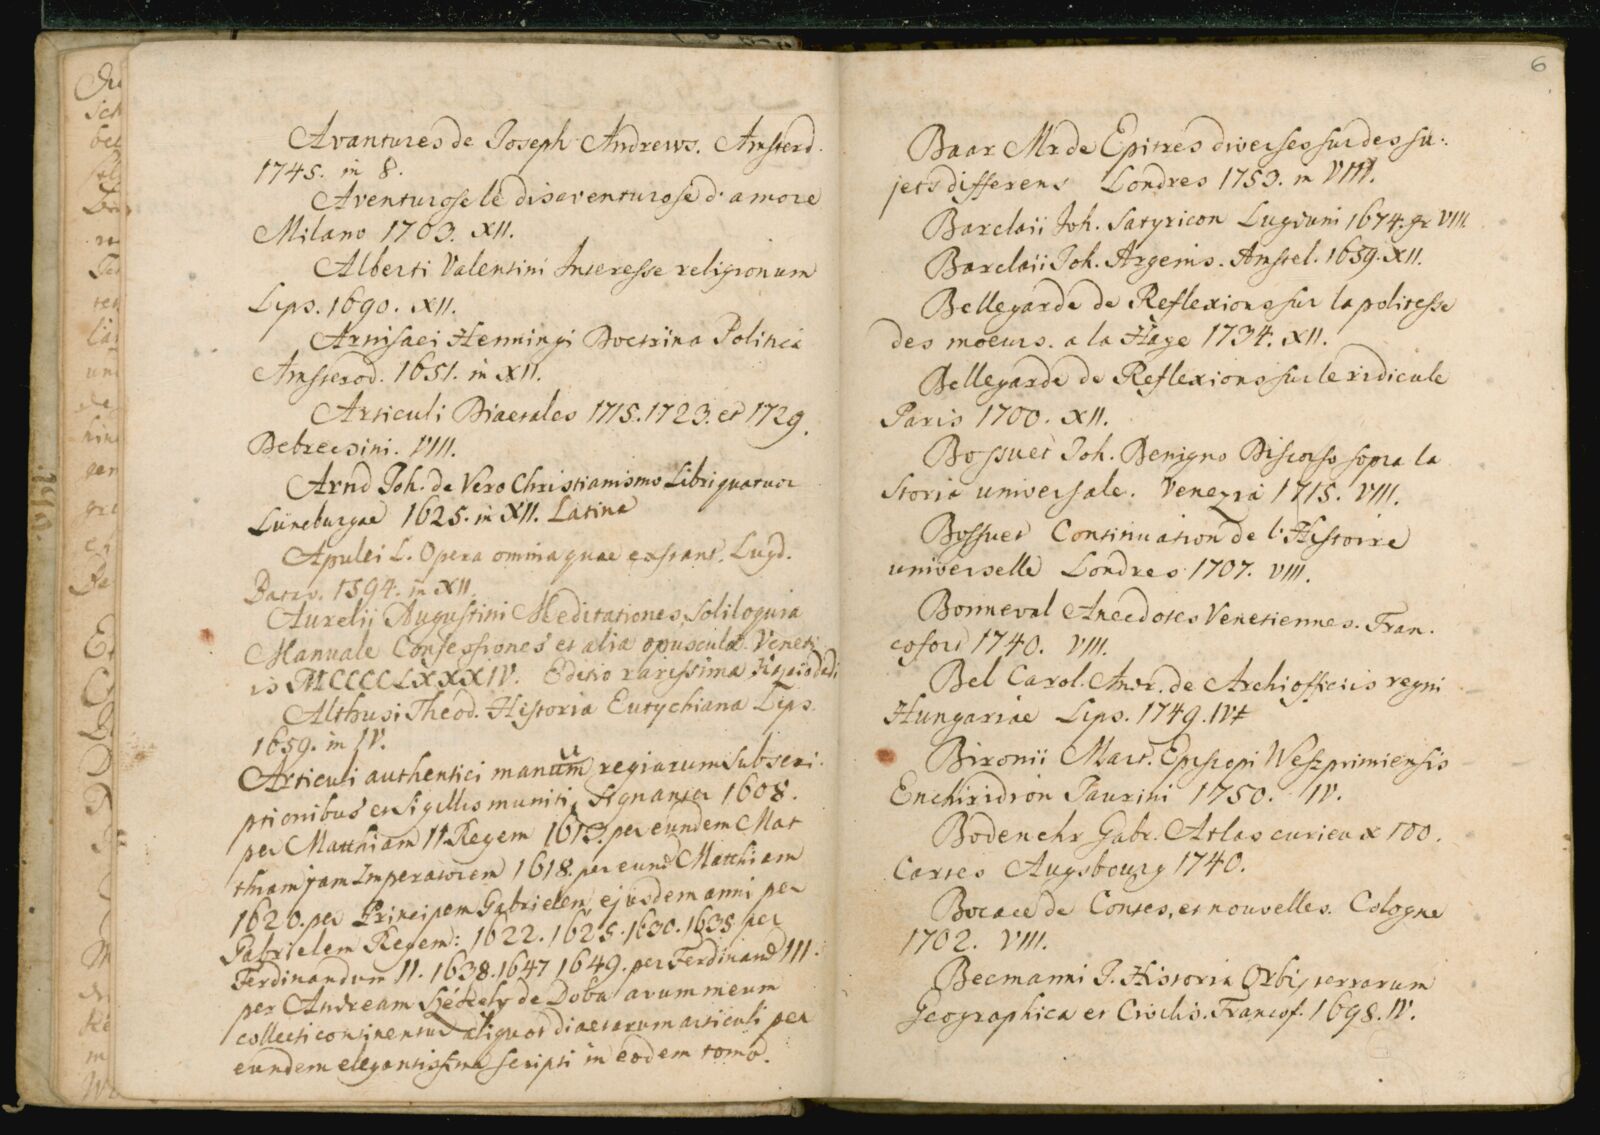 Avantures de Joseph Andrews. Amsterd.
1745. in 8.
Aventurose le disaventurose d'amore
Milano 1703. XII.
Alberti Valentini Interesse religionum
Lips. 1690. XII.
Arnisaei Henningi Doctrina Politica
Amsterod. 1651. in XII.
Articuli Diaetales 1715. 1723. et 1729.
Debrecsini. VIII.
Arnd Joh. de Vero Christianismo Libri quatuor
Lüneburgae 1625. in XII. Latine
Apulei L. Opera omnia quae exstant. Lugd.
Batav. 1594. in XII.
Aurelii Augustini Meditationes, soliloquia
Manuale Confessiones et alia opuscula. Veneti
is MCCCCLXXXIV. Editio rarissima
Althusi Theod. Historia Eutychiana Lips.
1659. in IV.
Articuli authentici manuum regiarum subscri
ptionibus et sigillis muniti, signanter 1608.
per Matthiam II Regem 1613. per eundem Mat
thiam jam Imperatorem 1618. per eund Matthiam
1620. per Principem Gabrielem, ejusdem anni per
Gabrielem Regem: 1622. 1625. 1630. 1635 per
Ferdinandum II. 1638. 1647 1649. per Ferdinand III.
per Andream de Doba avum meum
collecti continentur aliquot diaetarum articuli per
eundem elegantissime scripti in eodem tomo.
6
Baar Mr de Epitres diverses sur des su:
jets differens Londres 1753. in VIII.
Barclaii Joh. Satyricon Lugduni 1674. gr VIII.
Barclaii Joh. Argenis. Amstel. 1659. XII.
Bellegarde de Reflexions sur la politesse
des moeurs. a la Haye 1734. XII.
Bellegarde de Reflexions sur le ridicule
Paris 1700. XII.
Bossuet Joh. Benigno Discorso sopra la
storia universale. Venezia 1715. VIII.
Bossuet Continuation de l'Histoire
universelle Londres 1707. VIII.
Bonneval Anecdotes Venetiennes. Fran.
coford 1740. VIII.
Bel Carol. Andr. de Archiofficiis regni
Hungariae Lips. 1749. IV
Bironii Mart. Episcopi Weszprimiensis
Enchiridion Jaurini 1750. IV.
Bodenehr Gabr. Atlas curieux 100.
Cartes Augsbourg 1740.
Bocace de Contes, et nouvelles. Cologne
1702. VIII.
Becmanni J. Historia Orbis terrarum
Geographica et Civilis. Francof. 1698. IV.